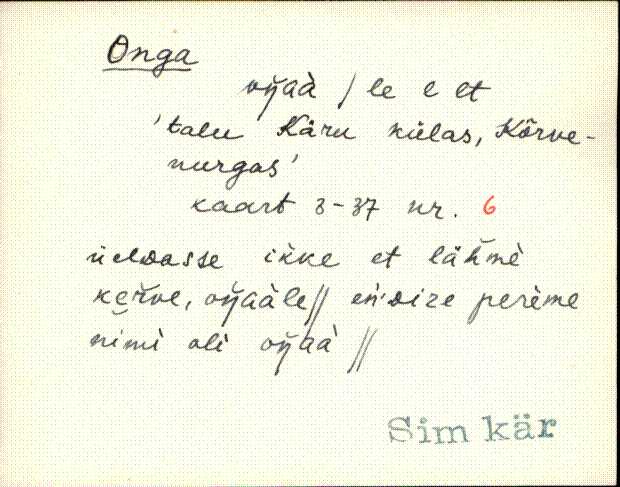 Onga
oŋ̆aà / le e et
'talu Käru külas, Kõrve-
nurgas'
kaart 3-37 nr. 6
üeldasse ikke et lähmè
ker̆ve, oŋ̆aàle // eńdize perème
nimì oli oŋ̆aà //
Sim kär